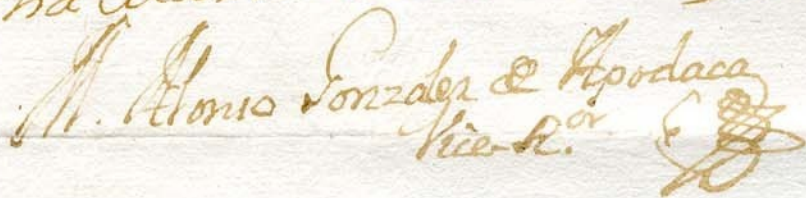 M. Alonso Gonzalez de Apodaca
Vice-R.or